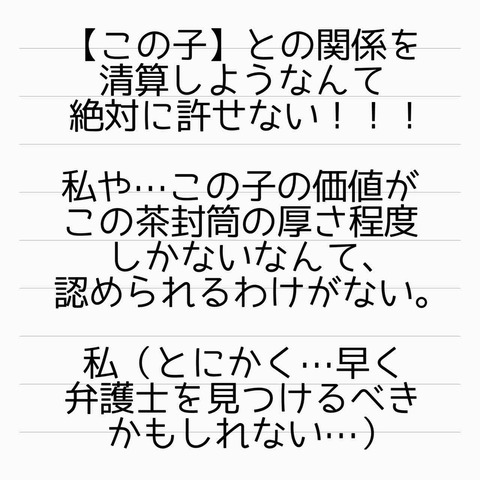 【この子】との関係を
清算しようなんて
絶対に許せない！！！
私や…この子の価値が
この茶封筒の厚さ程度
しかないなんて、
認められるわけがない。
私（とにかく…早く
弁護士を見つけるべき
かもしれない…）